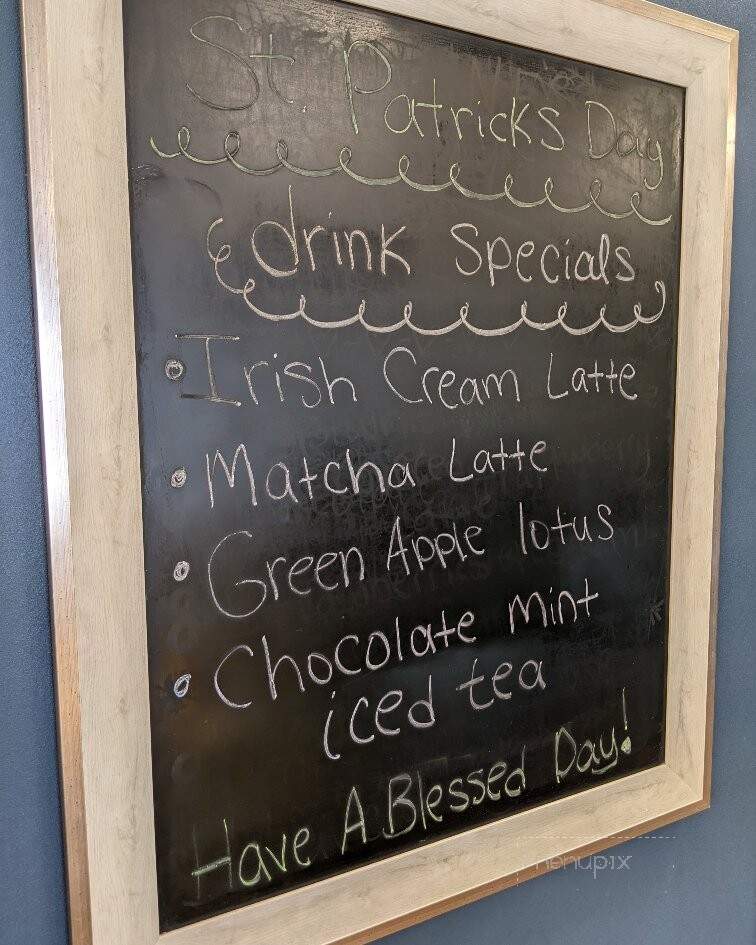 St. Patricks Day
drink Specials
Irish Cream Latte
Matcha Latte
Green Apple lotus
Chocolate mint
iced tea
Have A Blessed Day!
menupix